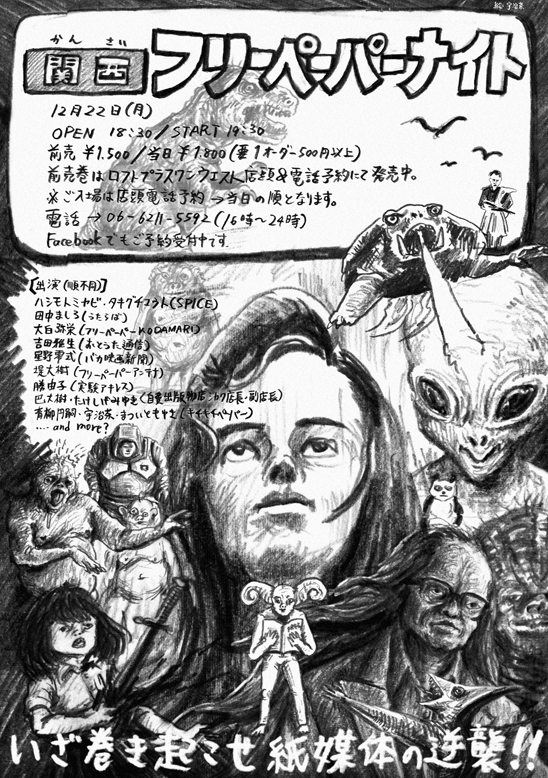 絵・宇治茶
かんさい
関西 フリーペーパーナイト
12月22日(月)
OPEN 18:30/START 19:30
前売 ¥1.500/当日 ¥1.800(要1オーダー500円以上)
前売巻はロフトプラスワンウエスト店頭&電話予約にて発売中。
※ご入場は店頭電話予約→当日の順となります。
電話→06-6211-5592(16時〜24時)
Facebookでもご予約受付中です.
【出演(順不同)】
ハシモトミヤビ・タキグチユウト(SPICE)
田中ましろ(うたらば)
大臼弥栄(フリーペーパーKODAMARI)
吉田雅生(おとうた通信)
星野零式(バカ映画新聞)
堤大樹(フリーペーパーアンテナ)
勝由子(実験アキレス)
巴大樹・たけしげみゆき(自費出版物店シカク店長・副店長)
青柳円嗣・宇治茶・まついともゆき(キイキイペーパー)
.... and more?
いざ巻き起こせ紙媒体の逆襲!!